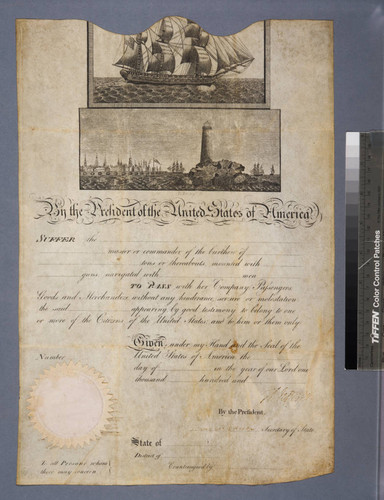 By the President of the United States of America,
SUFFER the
master or commander of the burthen of
tons or thereabouts mounted with
guns navigated with men
TO PASS with her Company Passengers
Goods and Merchandize without any hinderance seisure or molestation
the said appearing by good testimony to belong to one
or more of the Citizens of the United States and to him or them only.
Given under my Hand and the Seal of the
United States of America the
day of in the year of our Lord one
thousand hundred and
Number
By the President,
Secretary of State
State of
District of
Countersigned by
To all Persons whom
these may concern
TIFFEN Color Control Patches